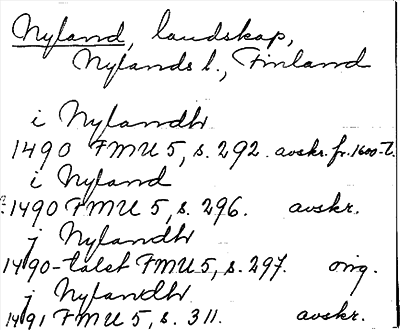 Nyland, landskap,
Nylands l., Finland
i Nylandhr
1490 FMU 5, s. 292. avskr. fr. 1600-t.
i Nyland
1490 FMU 5, s. 296. avskr.
j Nylandhr
1490-talet FMU 5, s. 297. orig.
j Nylandhr
1491 FMU 5, s. 311. avskr.